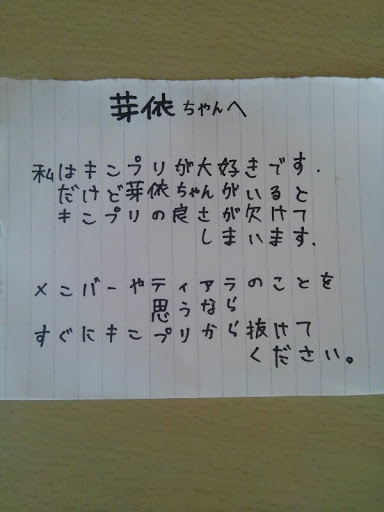 芽依ちゃんへ
私はキンプリが大好きです.
だけど芽依ちゃんがいると
キンプリの良さが欠けて
しまいます.
メンバーやティアラのことを
思うなら
すぐにキンプリから抜けて
ください。